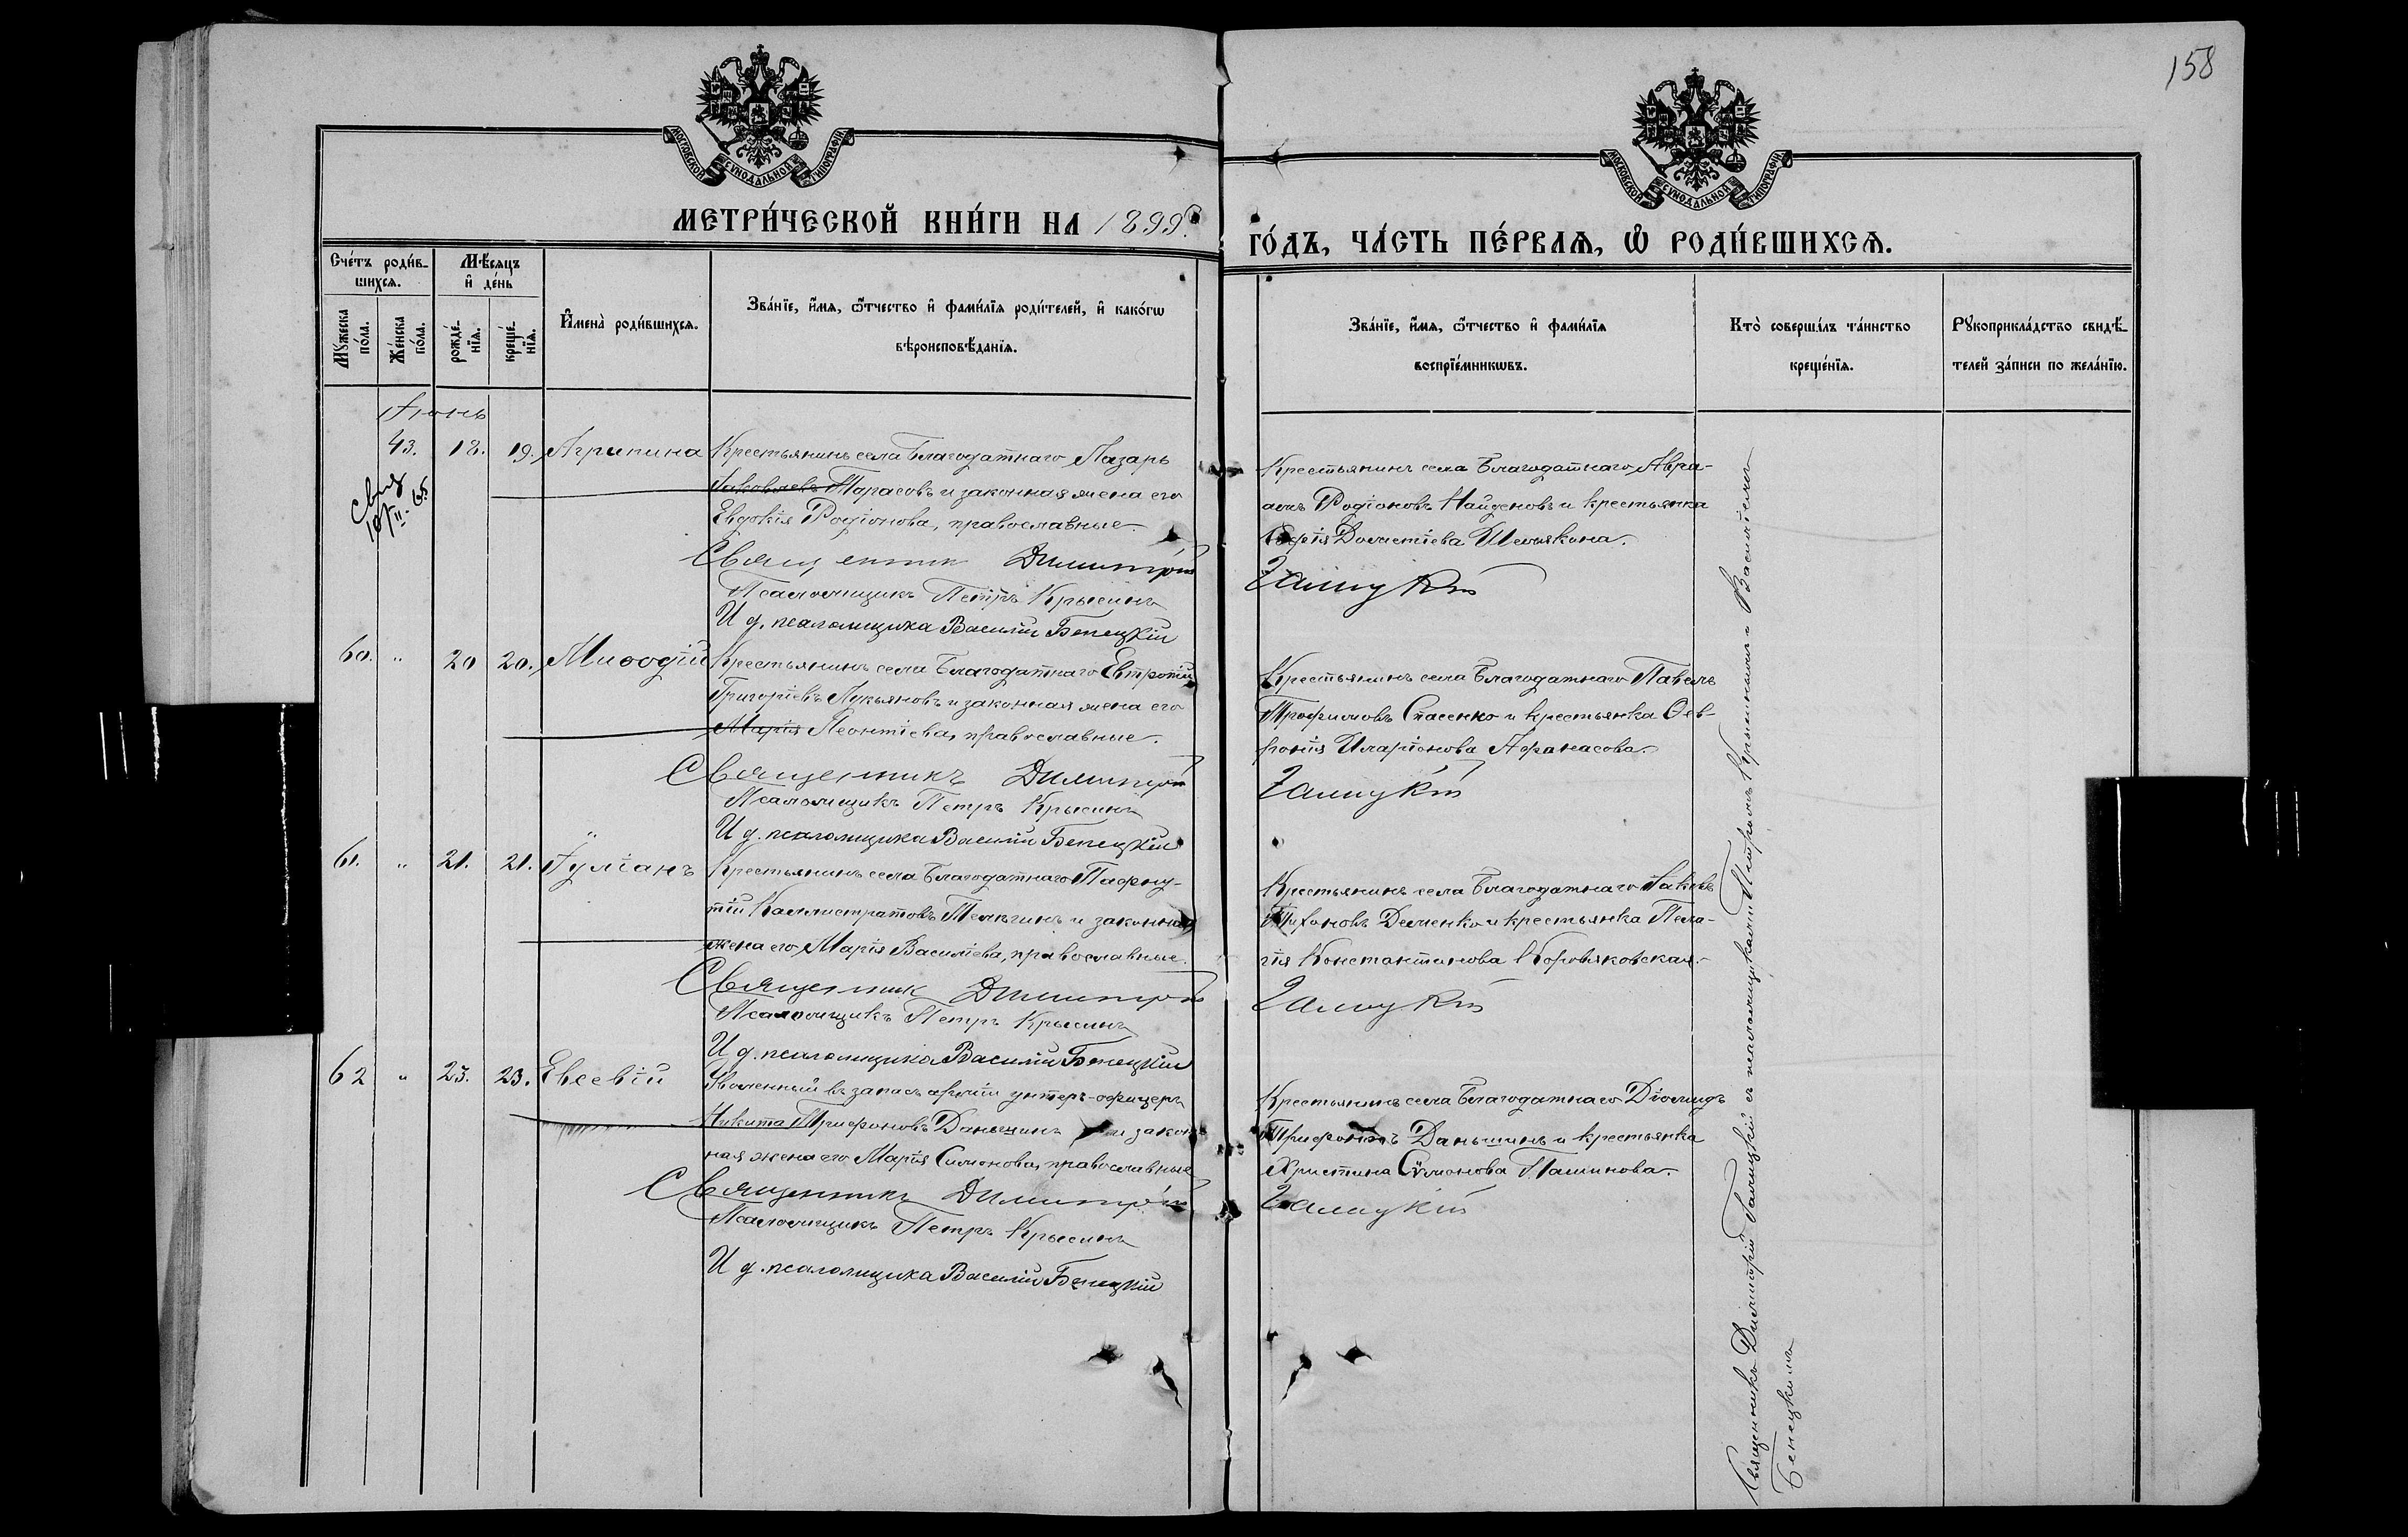 158
МОСКОВСКОЙ СѴНОДАЛЬНОЙ ТИПОГРАФІИ
МОСКОВСКОЙ СѴНОДАЛЬНОЙ ТИПОГРАФІИ
МЕТРИ́ЧЕСКОЙ КНИ́ГИ НА 1899
ГО́ДЪ, ЧА́СТЬ ПЕ́РВАѦ, Ѡ РОДИ́ВШИХСѦ.
Сче́тъ роди́в-
шихсѧ.
Мѣ́сяцъ
и҆ де́нь
Мꙋ́жеска по́ла.
Же́нска по́ла.
рожде́-нїѧ.
креще́-нїѧ.
И҆мена̀ роди́вшихсѧ.
Зва́нїе, и҆́мѧ, ѻ҆́тчество и҆ фами́лїѧ роди́телей, и҆ како́гѡ
вѣроисповѣ́данїѧ.
Зва́нїе, и҆́мѧ, ѻ҆́тчество и҆ фами́лїѧ
воспрїе́мникѡвъ.
Кто̀ соверша́лъ та́инство
креще́нїѧ.
Рꙋкоприкла́дство свидѣ́-
телей за́писи по жела́нїю.
Іюнь
43. 18. 19. Агрипина Крестьянинъ села Благодатнаго Лазарь
Іаковлевъ Тарасовъ и законная жена его
Евдокія Родіонова, православные.
Священник Димитрій
Псаломщикъ Петръ Крысинъ
И д. псаломщика Василій Бенецкій
Крестьянинъ села Благодатнаго Авра-
амъ Родіоновъ Найденовъ и крестьянка
Софія Дометіева Шемякина.
Галицкій
60. " 20 20. Меѳодій Крестьянинъ села Благодатнаго Евтропій
Григоріевъ Лукьяновъ и законная жена его
Марія Леонтіева, православные.
Священникъ Димитрій
Псаломщикъ Петръ Крысинъ
И д. псаломщика Василій Бенецкій
Крестьянинъ села Благодатнаго Павелъ
Трофимовъ Спасенко и крестьянка Фев-
ронія Иларіонова Афанасова.
Галицкій
61. " 21. 21. Іуліанъ Крестьянинъ села Благодатнаго Пафну-
тій Каллистратовъ и законная
жена его Марія Василіева, православные.
Священник Димитрій
Псаломщикъ Петръ Крысинъ
И д. псаломщика Василій Бенецкій
Крестьянинъ села Благодатнаго Іаковъ
Тихоновъ Деменко и крестьянка Пела-
гія Константинова Коровяковская.
Галицкій
62 " 23. 23. Евсевій Уволенный въ запасъ арміи унтеръ-офицеръ
Никита Трифоновъ Даньшинъ и закон-
ная жена его Марія Симонова, православные
Священникъ Димитрій
Псаломщикъ Петръ Крысинъ
И д. псаломщика Василій Бенецкій
Крестьянинъ села Благодатнаго Діомидъ
Трифоновъ Даньшинъ и крестьянка
Христина Сѵмонова Пашинова.
Галицкій
Священникъ Димитрій Галицкій съ псаломщиками Петромъ Крысинымъ и Василіемъ
Бенецкимъ